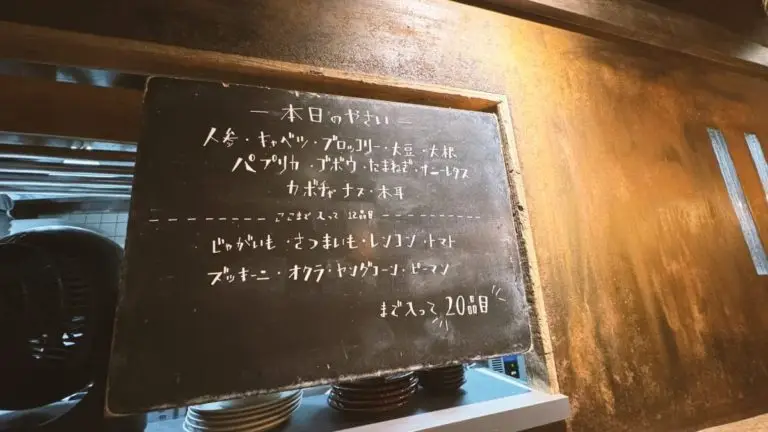 — 本日のやさい —
人参・キャベツ・ブロッコリー・大豆・大根
パプリカ・ゴボウ・たまねぎ・サニーレタス
カボチャ・ナス・木耳
ここまで入って 12品目
じゃがいも・さつまいも・レンコン・トマト
ズッキーニ・オクラ・ヤングコーン・ピーマン
まで入って 20品目